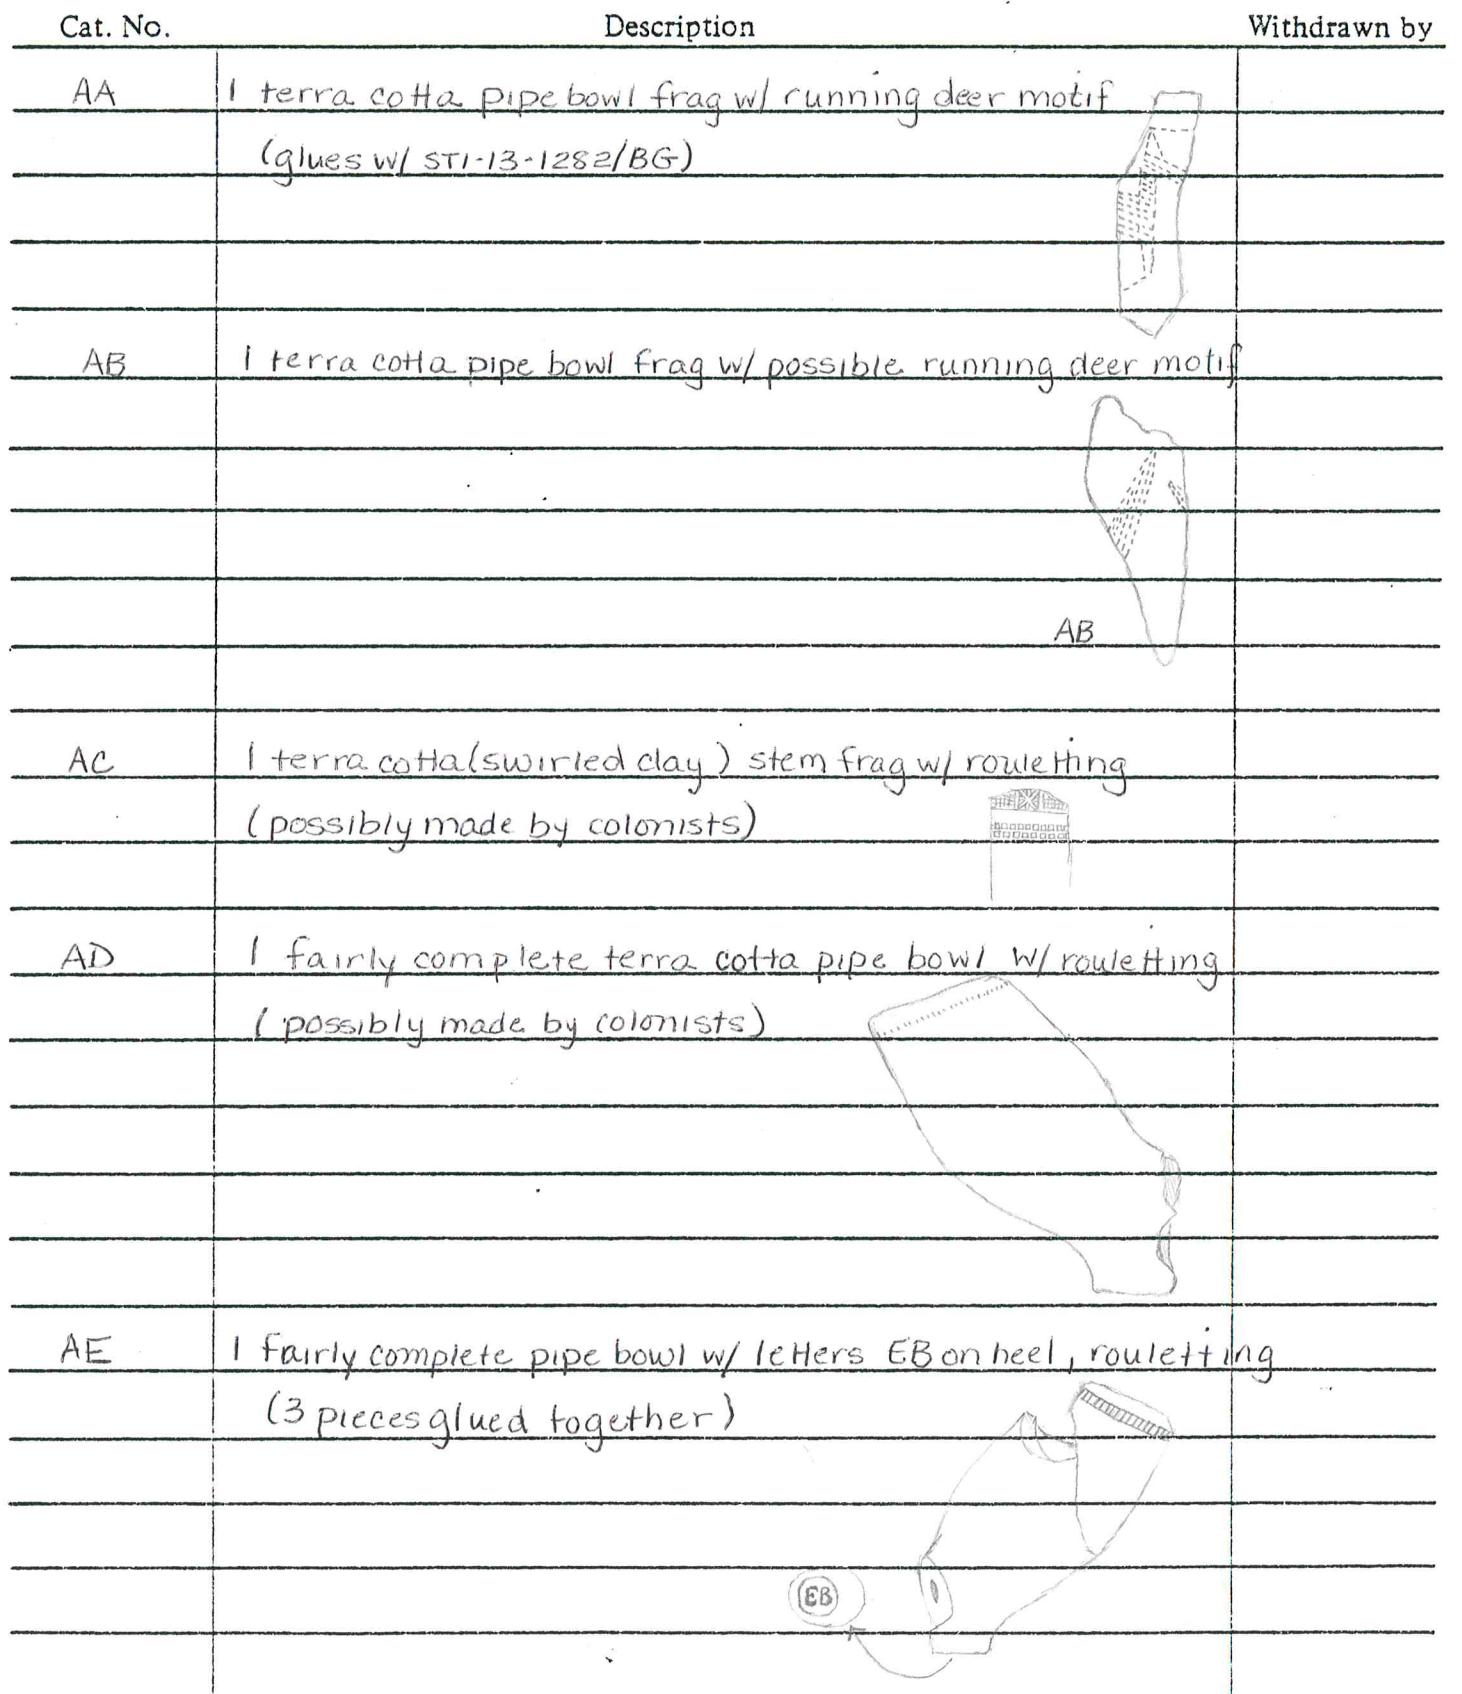 Cat. No. Description Withdrawn by
AA 1 terra cotta pipe bowl frag w/ running deer motif
(glues w/ ST1-13-1282/BG)
AB 1 terra cotta pipe bowl frag w/ possible running deer motif
AB
AC 1 terra cotta (swirled clay) stem frag w/ rouletting
(possibly made by colonists)
AD 1 fairly complete terra cotta pipe bowl w/ rouletting
(possibly made by colonists)
AE 1 fairly complete pipe bowl w/ letters EB on heel, rouletting
(3 pieces glued together)
EB